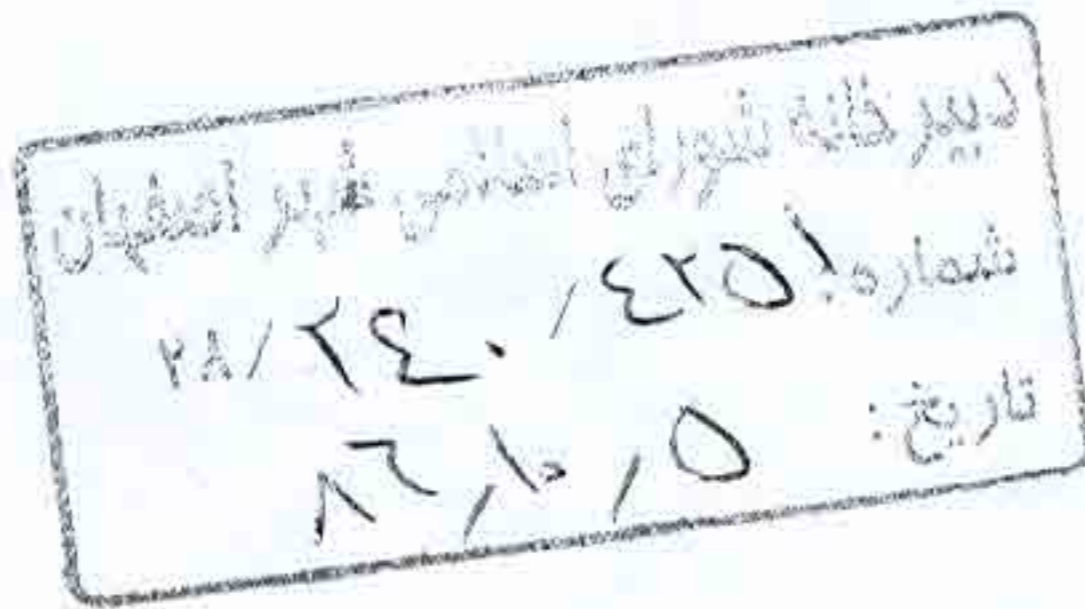 دبیرخانه شورای اسلامی شهر اصفهان
شماره: ۲۸/۲۴۰/۴۲۵۱
تاریخ: ۸۶/۱۰/۵